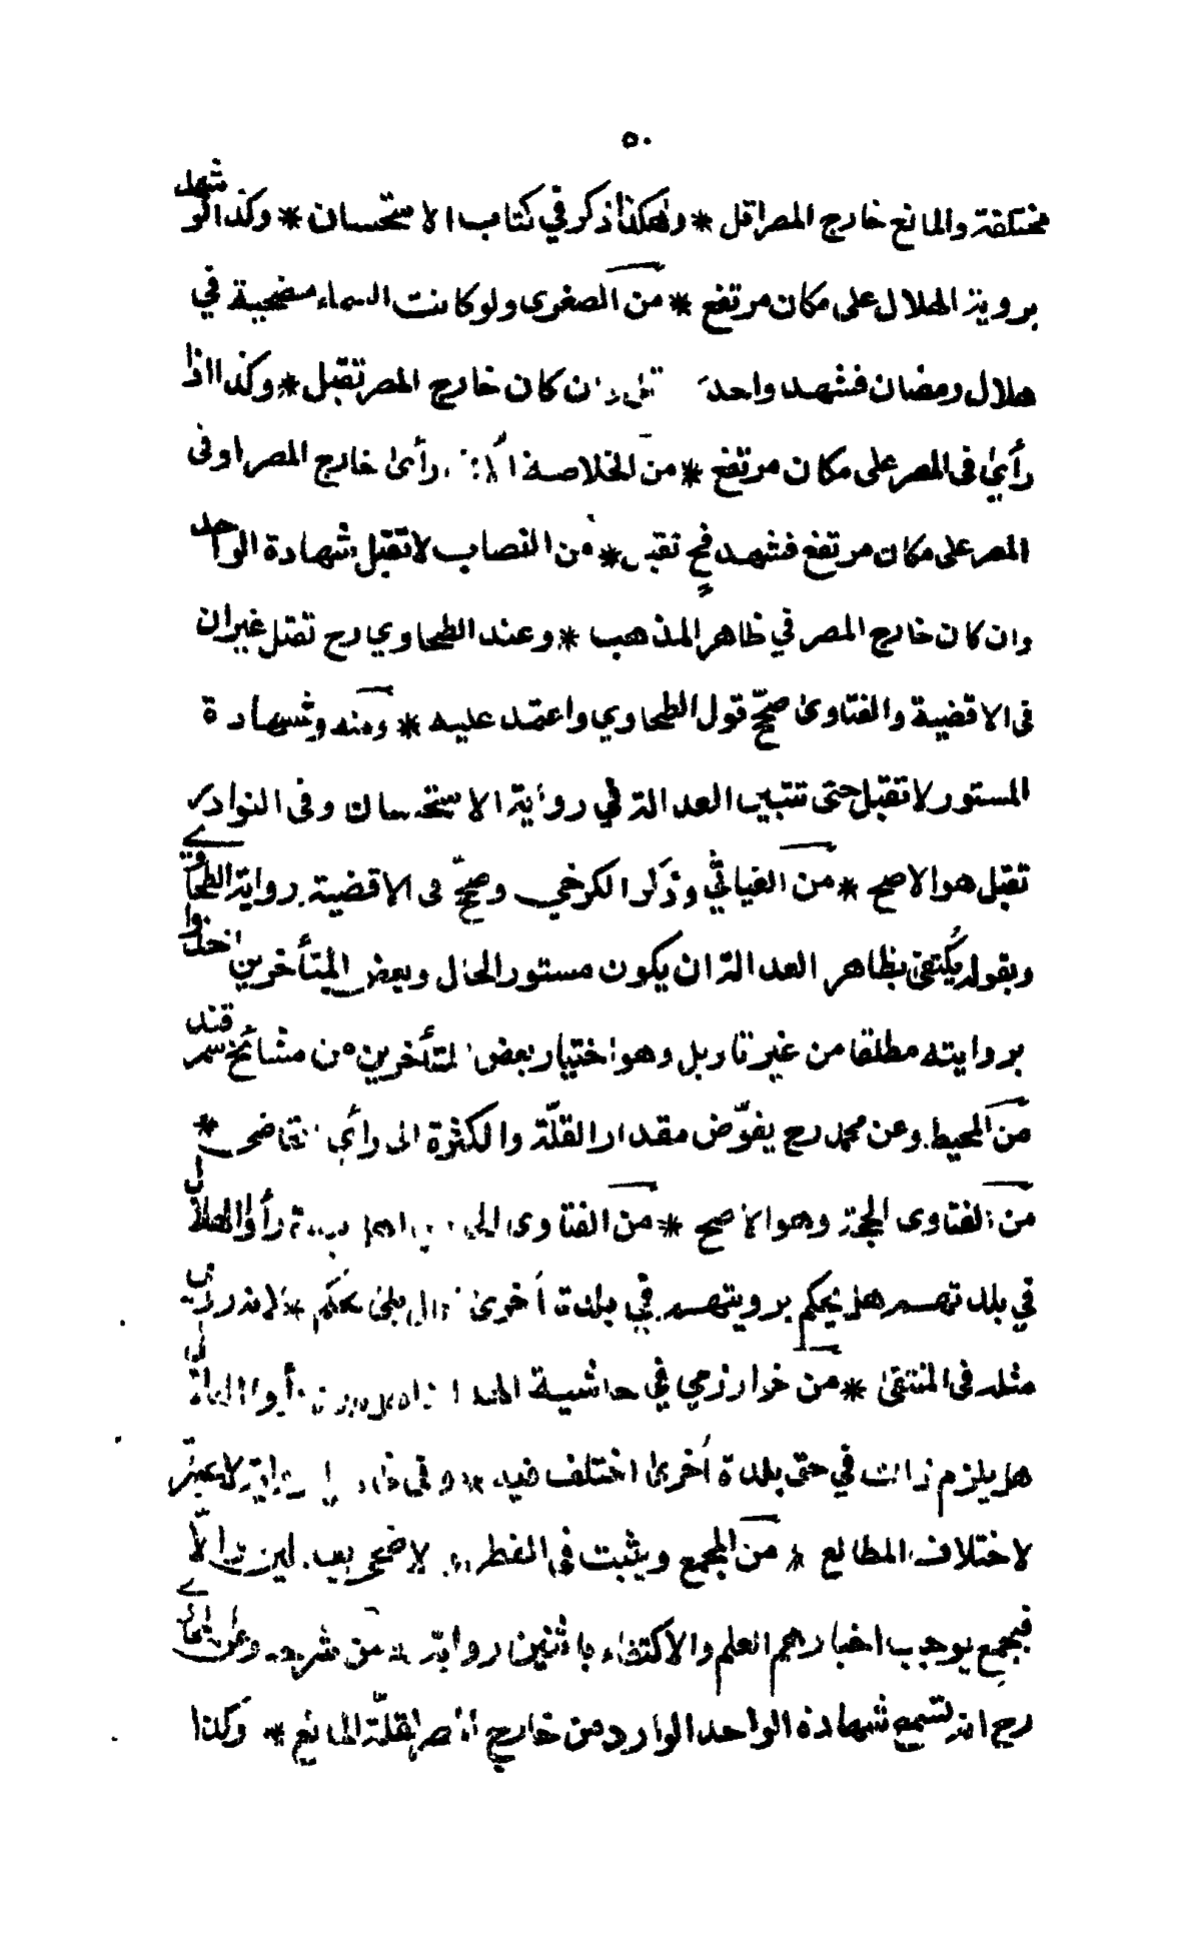 ٥٠
مختلفة والمانع خارج المصر اقل * وهكذا ذكر في كتاب الاستحسان * وكذا لو شهد
بروية الهلال على مكان مرتفع * من الصغرى ولو كانت السماء مضحية في
هلال رمضان فشهد واحد ان كان خارج المصر تقبل * وكذا اذا
رأى في المصر على مكان مرتفع * من الخلاصة رأى خارج المصر او في
المصر على مكان مرتفع فشهد فح تقبل * من النصاب لا تقبل شهادة الواحد
وان كان خارج المصر في ظاهر المذهب * وعند الطحاوي رح تقبل غير ان
في الاقضية والفتاوى صحّح قول الطحاوي واعتمد عليه * ومنه وشهادة
المستور لا تقبل حتى تتبين العدالة في رواية الاستحسان وفي النوادر
تقبل هو الاصح * من الغياثي وذكر الكرخي وصحّح في الاقضية رواية الطحاوي
وبقوله يُكتفى بظاهر العدالة ان يكون مستور الحال وبعض المتأخرين اخذوا
بروايته مطلقا من غير تاويل وهو اختيار بعض المتأخرين من مشائخ سمرقند
من المحيط وعن محمد رح يفوّض مقدار القلّة والكثرة الى رأي القاضي *
من الفتاوى الحجة وهو الاصح * من الفتاوى رأوا الهلال
في بلدتهم هل يحكم برويتهم في بلدة أخرى
مثله في المنتقى * من خوارزمي في حاشية
هل يلزم ذلك في حق بلدة أخرى اختلف فيه * وفي لا عبرة
لاختلاف المطالع * من المجمع ويثبت في الفطر
فبجمع يوجب اخبارهم العلم والاكتفاء باثنين رواية * من شرحه
رح انه تسمع شهادة الواحد الوارد من خارج المصر لقلّة المانع * وكذا